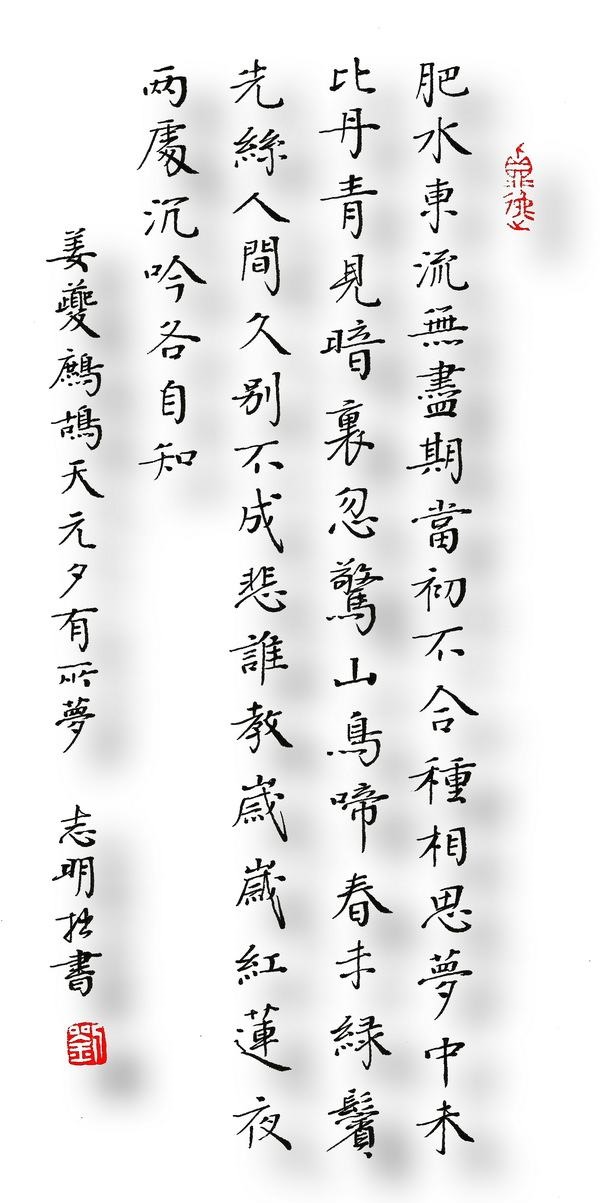 肥水東流無盡期當初不合種相思夢中未
比丹青見暗裏忽驚山鳥啼春未緑鬢
先絲人間久别不成悲誰教歲歲紅蓮夜
兩處沉吟各自知
姜夔鷓鴣天元夕有所夢 志明拙書
劉